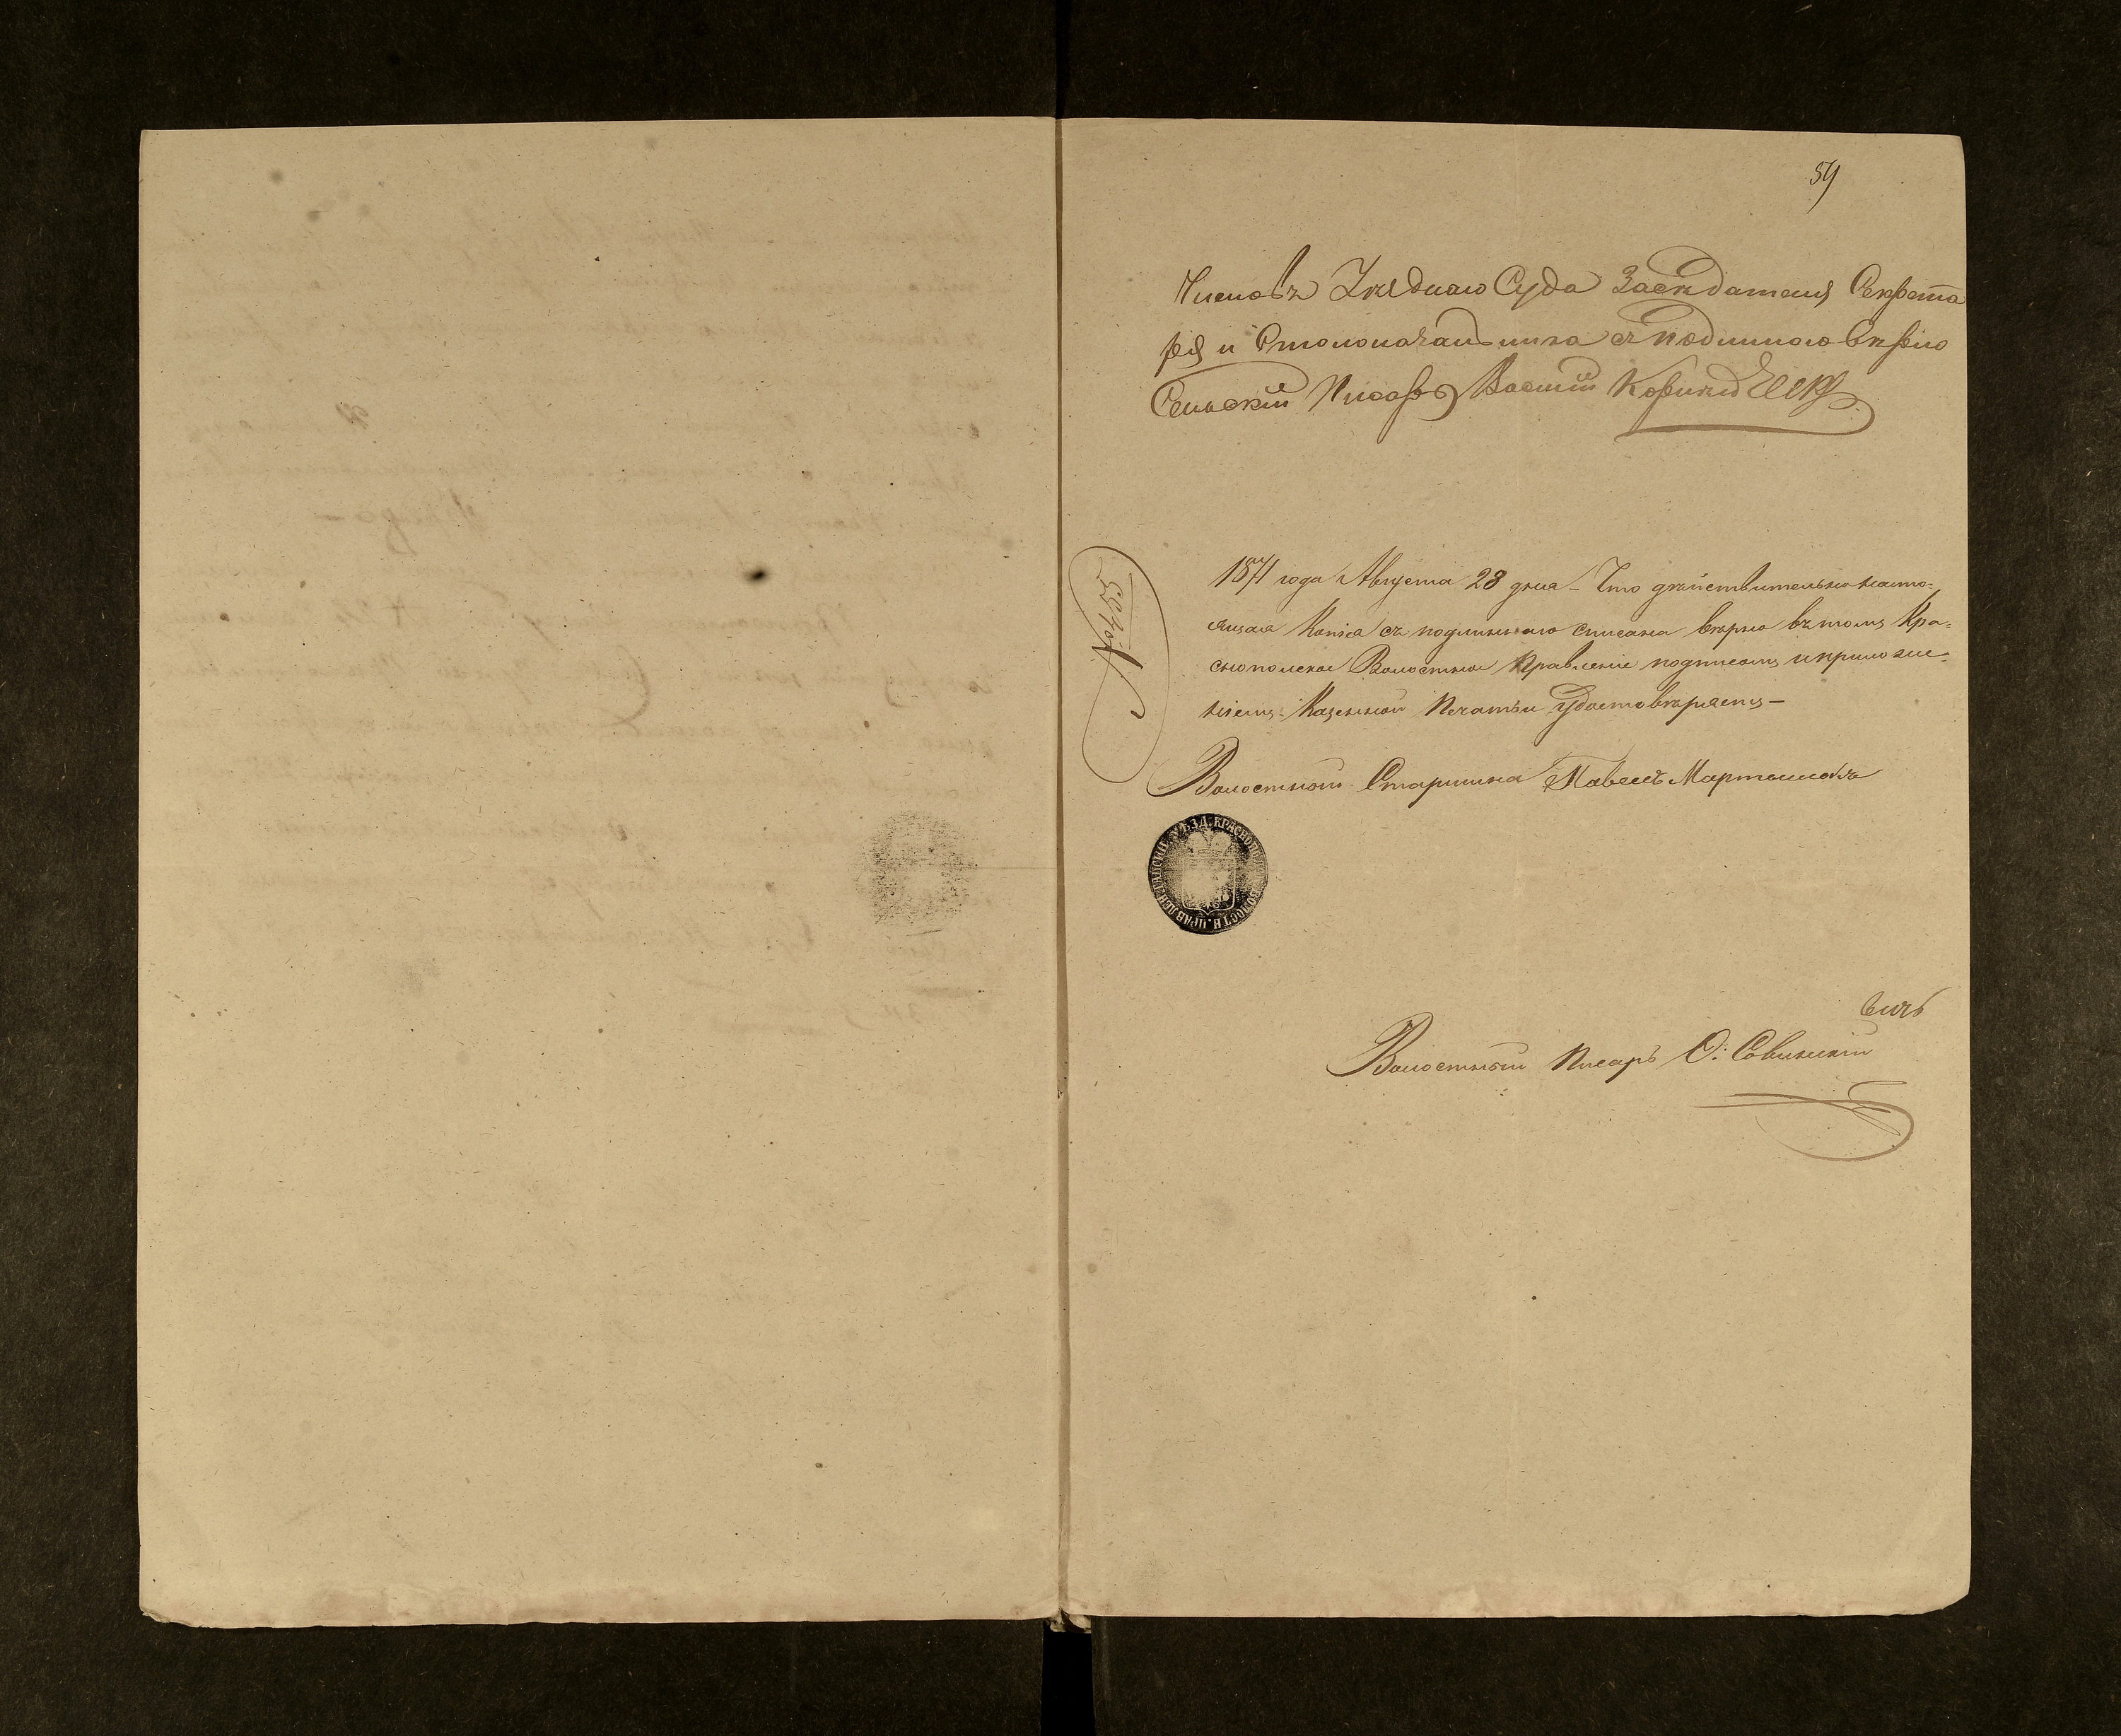 59
Членовъ Уѣзднаго Суда Засѣдателя Секрета
ря и Столоначальника съ подлиною вѣрно
Сельскій Писарь Василій
№ 455
1871 года Августа 23 дня – Что дѣйствительно насто-
ящая Копія съ подлиннаго списана вѣрно въ томъ Кра-
снопольское Волостное Правленіе подписомъ и приложе-
ніемъ Казенной Печати удостовѣряетъ –
Волостный Старшина Павелъ
УѢЗД. КРАСНОПОЛ ВОЛОСТН. ПРАВЛЕН.
вичъ
Волостный Писарь О. Савинскій